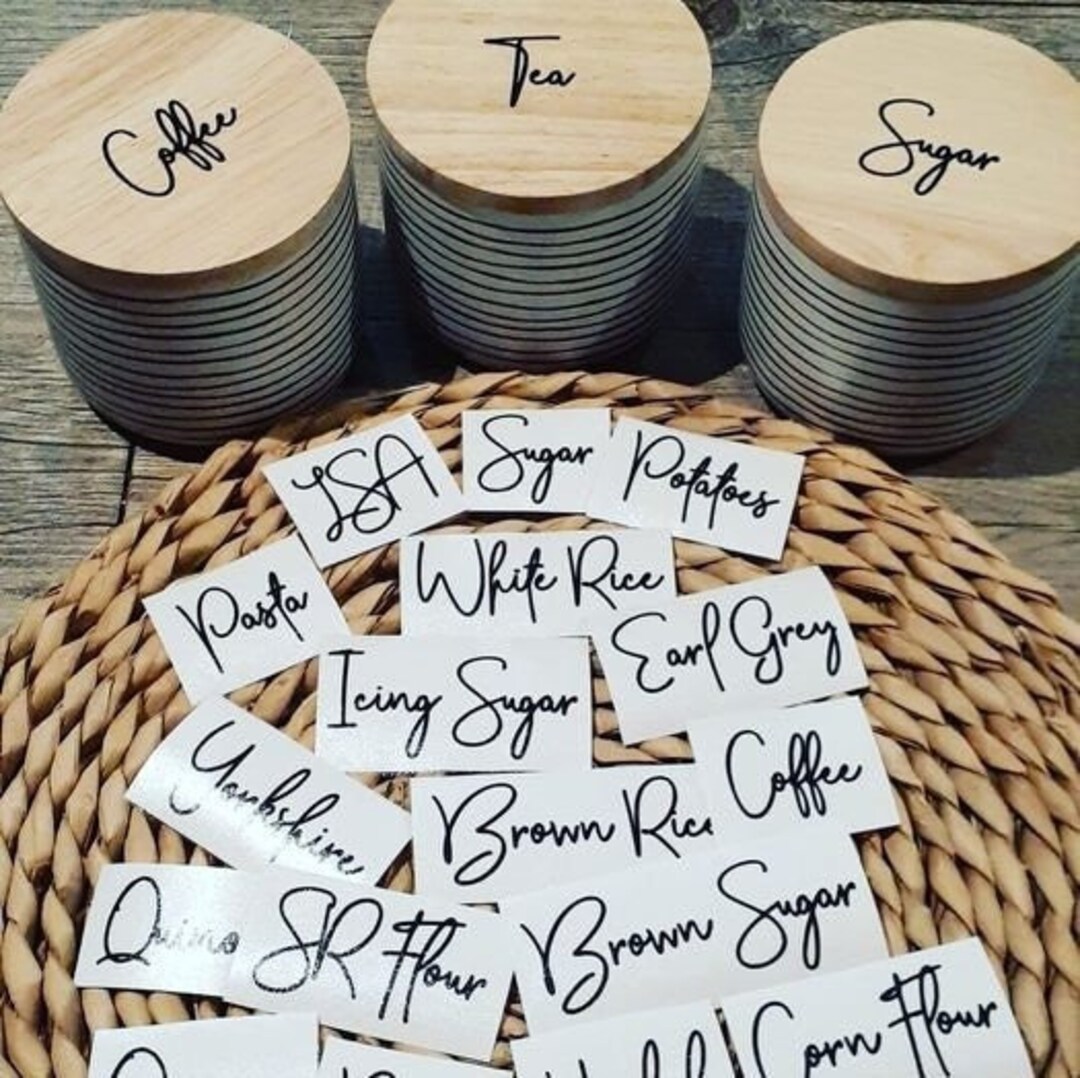 Coffee
Tea
Sugar
LSA
Sugar
Potatoes
Pasta
White Rice
Earl Grey
Icing Sugar
Yorkshire
Coffee
Brown Rice
Quino
SR Flour
Brown Sugar
Corn Flour